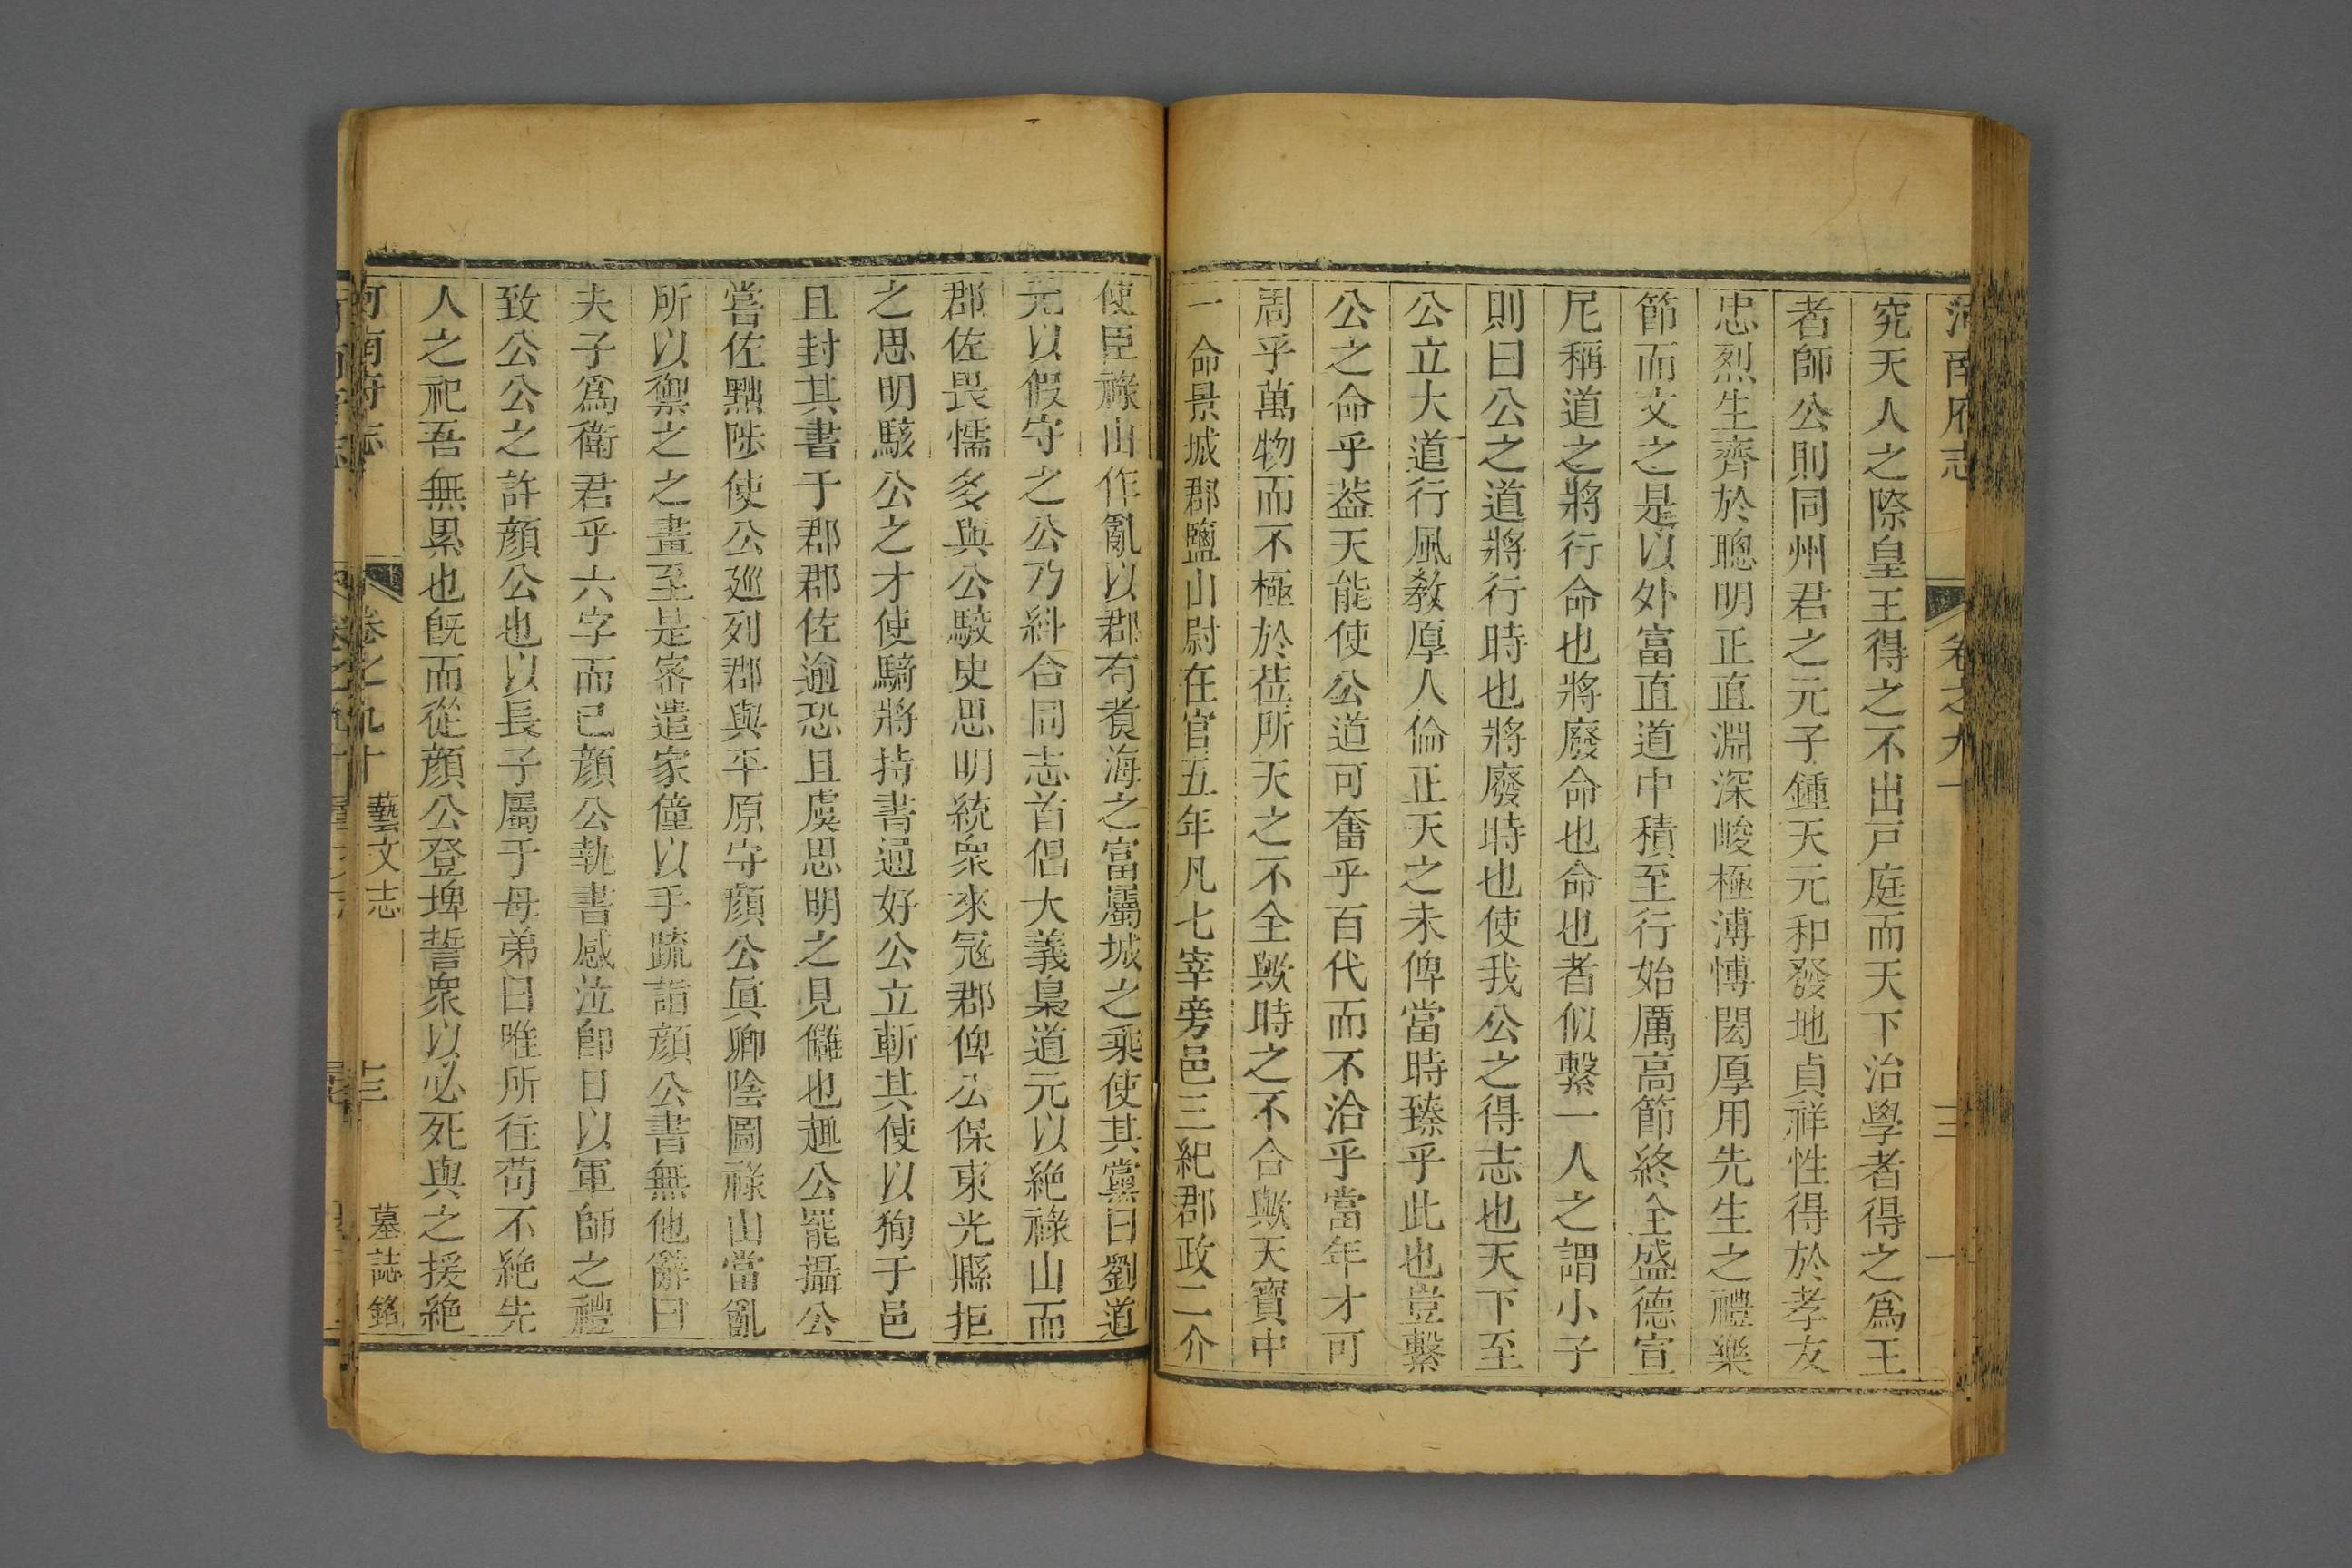 河南府志 卷之九十
究天人之際皇王得之不出戸庭而天下治學者得之爲王
者師公則同州君之元子鍾天元和發地貞祥性得於孝友
忠烈生齊於聰明正直淵深峻極溥愽閎厚用先生之禮樂
節而文之是以外富直道中積至行始厲高節終全盛德宣
尼稱道之將行命也將廢命也命也者似繫一人之謂小子
則曰公之道將行時也將廢時也使我公之得志也天下至
公立大道行風教厚人倫正天之未俾當時臻乎此也豈繫
公之命乎葢天能使公道可奮乎百代而不洽乎當年才可
周乎萬物而不極於莅所天之不全歟時之不合歟天寶中
一命景城郡鹽山尉在官五年凡七宰旁邑三紀郡政二介
使臣祿山作亂以郡有煑海之富屬城之乘使其黨曰劉道
元以假守之公乃糾合同志首倡大義梟道元以絶祿山而
郡佐畏懦多與公駮史思明統衆來冦郡俾公保東光縣拒
之思明駭公之才使騎將持書通好公立斬其使以狥于邑
且封其書于郡郡佐逾恐且虞思明之見讎也趣公罷攝公
嘗佐黜陟使公廵列郡與平原守顔公眞卿陰圖祿山當亂
所以禦之之畫至是密遣家僮以手疏詣顔公書無他辭曰
夫子爲衛君乎六字而已顔公執書感泣卽日以軍師之禮
致公公之許顔公也以長子屬于母弟曰唯所往苟不絶先
人之祀吾無累也旣而從顔公登埤誓衆以必死與之援絶
河南府志 卷之九十 藝文志 墓誌銘